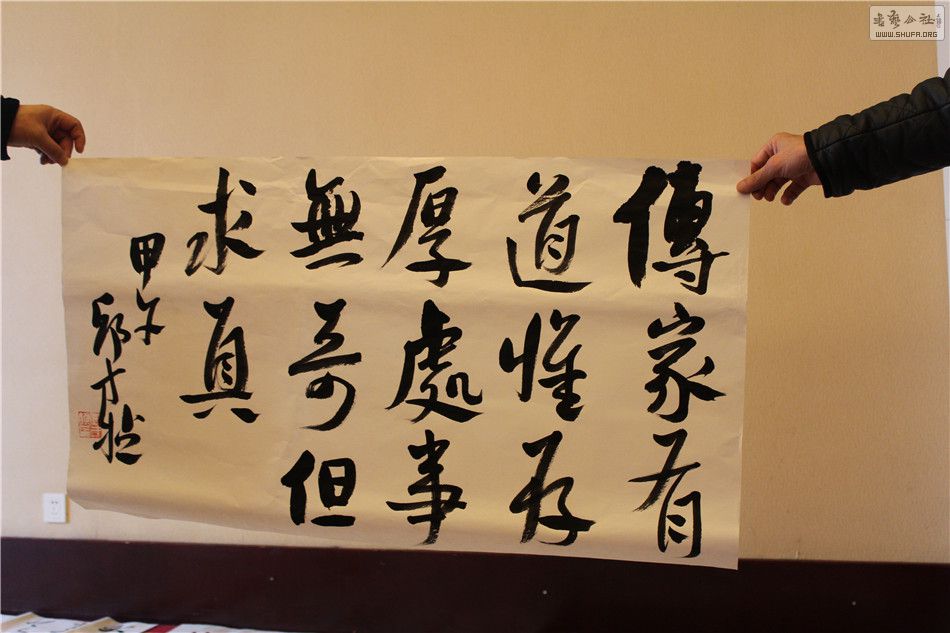 傳家有
道惟存
厚處事
無奇但
求真
甲午
书艺公社
WWW.SHUFA.ORG